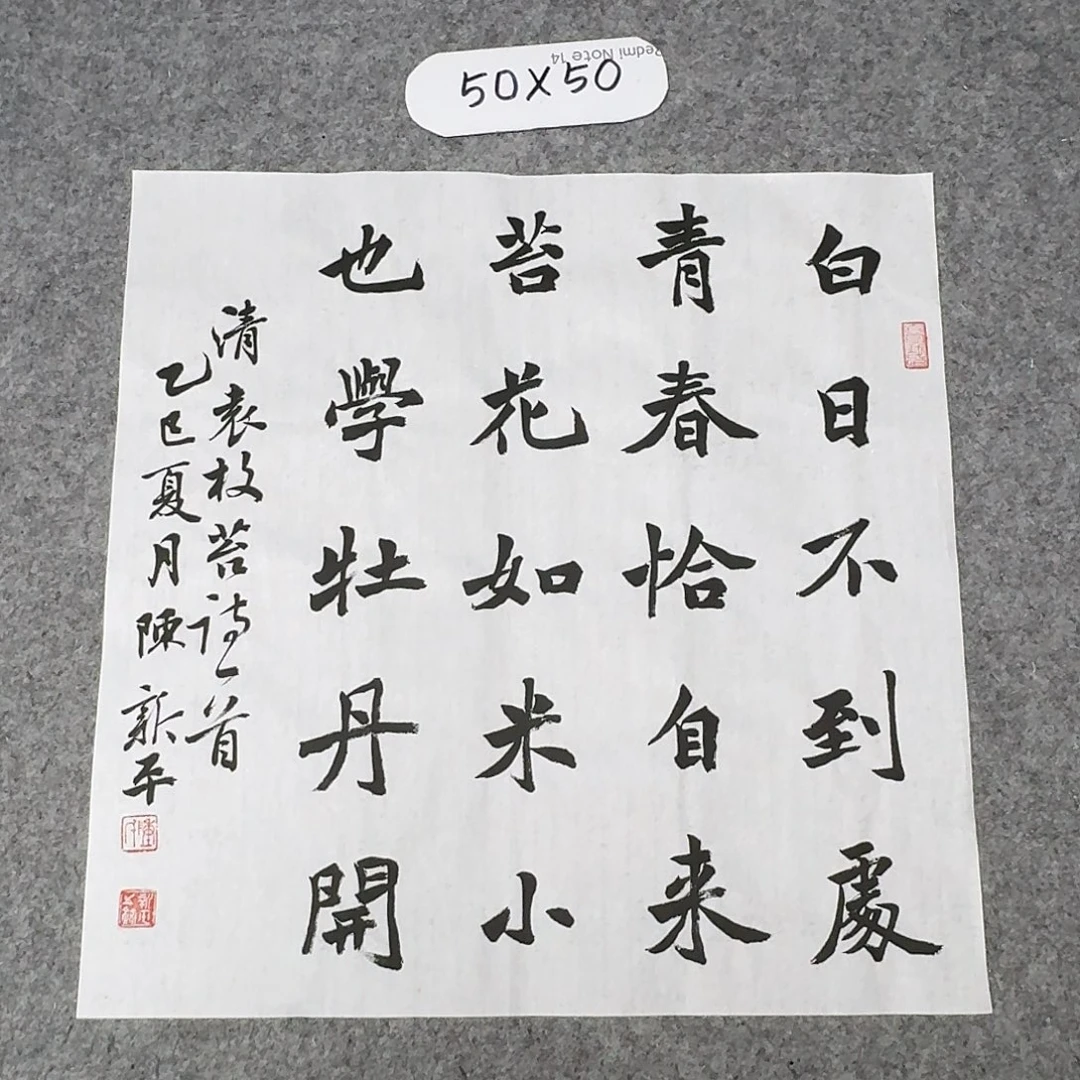 50X50
Redmi Note 14
白日不到處
青春恰自来
苔花如米小
也學牡丹開
清袁枚苔詩一首
乙巳夏月陳新平